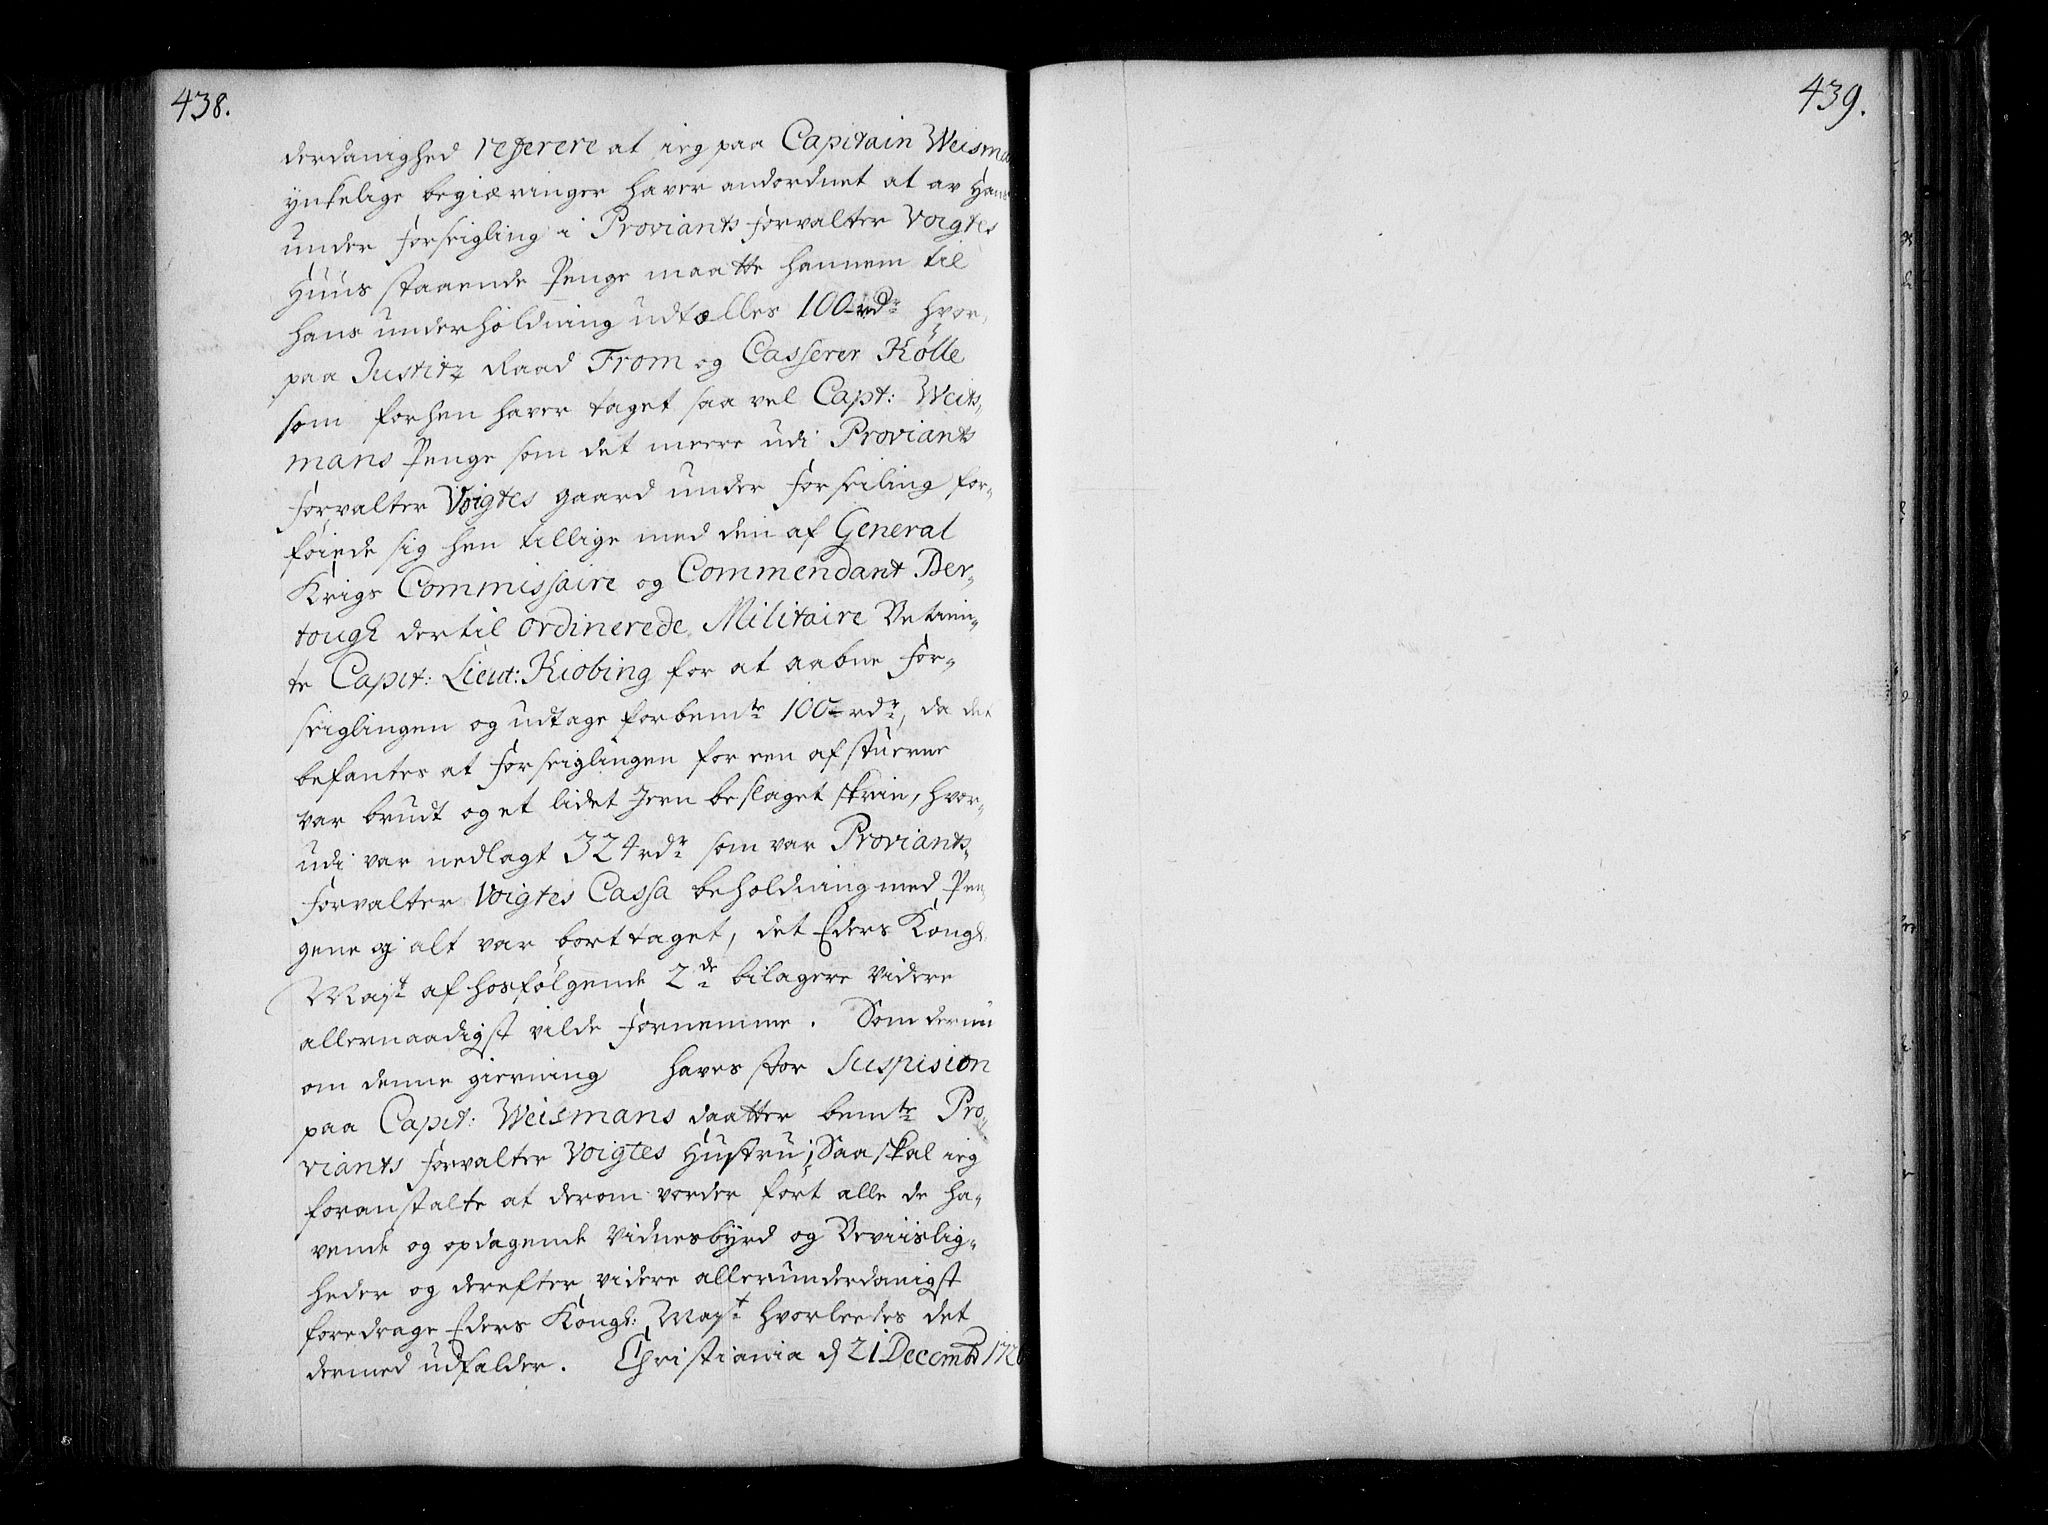 438.
derdanighed referere at ieg paa Capitain Weisman
ynkelige begiæringer haver andordnet at av Hans
under Forseigling i Proviants Forvalter Voigtes
Huus staaende Penge maatte hannem til
hans underholdning udtælles 100 rdr hvor,
paa Justitz Raad From og Casserer Kölle
som forhen haver taget saa vel Capt: Weits,
mans Penge som det meere udi Proviants
Forvalter Voigtes gaard under Forseiling for-
föiede sig hen tillige med den af General
Krigs Commissaire og Commendant Ber-
tough dertil ordinerede Militaire Betien-
te Capit: Lieut: Kiobing for at aabne For-
seiglingen og udtage forbemte 100 rdr, da det
befantes at Forseiglingen for een af stuerne
var brudt og et lidet Jern beslaget skrin, hvor-
udi var nedlagt 324 rdr som var Proviants-
Forvalter Voigtes Cassa beholdning med Pen
gene og alt var borttaget, det Eders Kongl:
Mayst af hosfölgende 2de bilagere videre
allernaadigst vilde Fornemme. Som der nu
om denne gierning haves stor Suspision
paa Capit: Weismans daatter bemte Pro-
viants Forvalter Voigtes Hustru; Saa skal ieg
foranstalte at derom vorder fört alle de ha-
vende og opdagende Vidnesbyrd og Beviislig-
heder og derefter videre allerunderdanigst
foredrage Eders Kongl: Mayst hvorleedes det
dermed udfalder. Christiania d 21 Decembr
439.